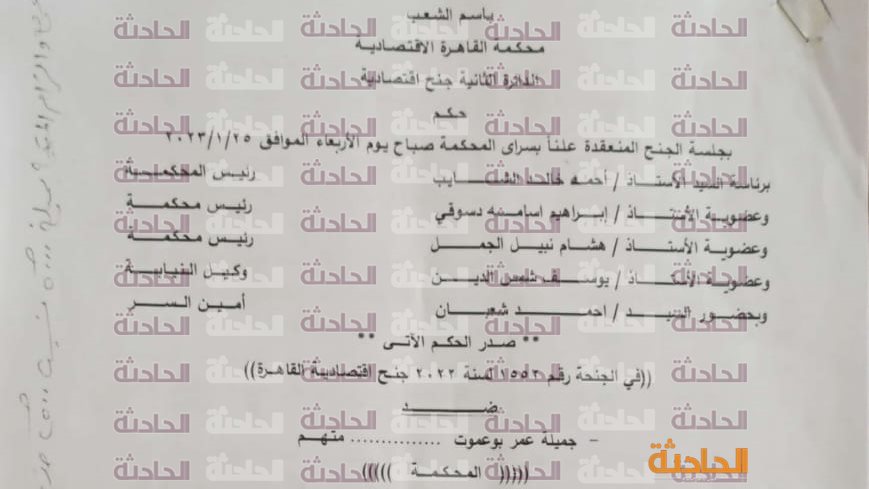 باسم الشعب
محكمة القاهرة الاقتصادية
الدائرة الثانية جنح اقتصادية
حكم
بجلسة الجنح المنعقدة علناً بسراى المحكمة صباح يوم الأربعاء الموافق ٢٠٢٣/١/٢٥
برئاسة السيد الأستاذ / أحمد خالد الشايب رئيس المحكمة
وعضوية الأستاذ / إبراهيم اسامه دسوقي رئيس محكمة
وعضوية الأستاذ / هشام نبيل الجمل رئيس محكمة
وعضوية الأستاذ / يوسف شمس الدين وكيل النيابة
وبحضور السيد / احمد شعبان أمين السر
** صدر الحكم الآتى **
((في الجنحة رقم ١٥٥٢ لسنة ٢٠٢٢ جنح اقتصادية القاهرة))
ضد
- جميلة عمر بوعموت ............... متهم
((((( المحكمة )))))
الحادثة